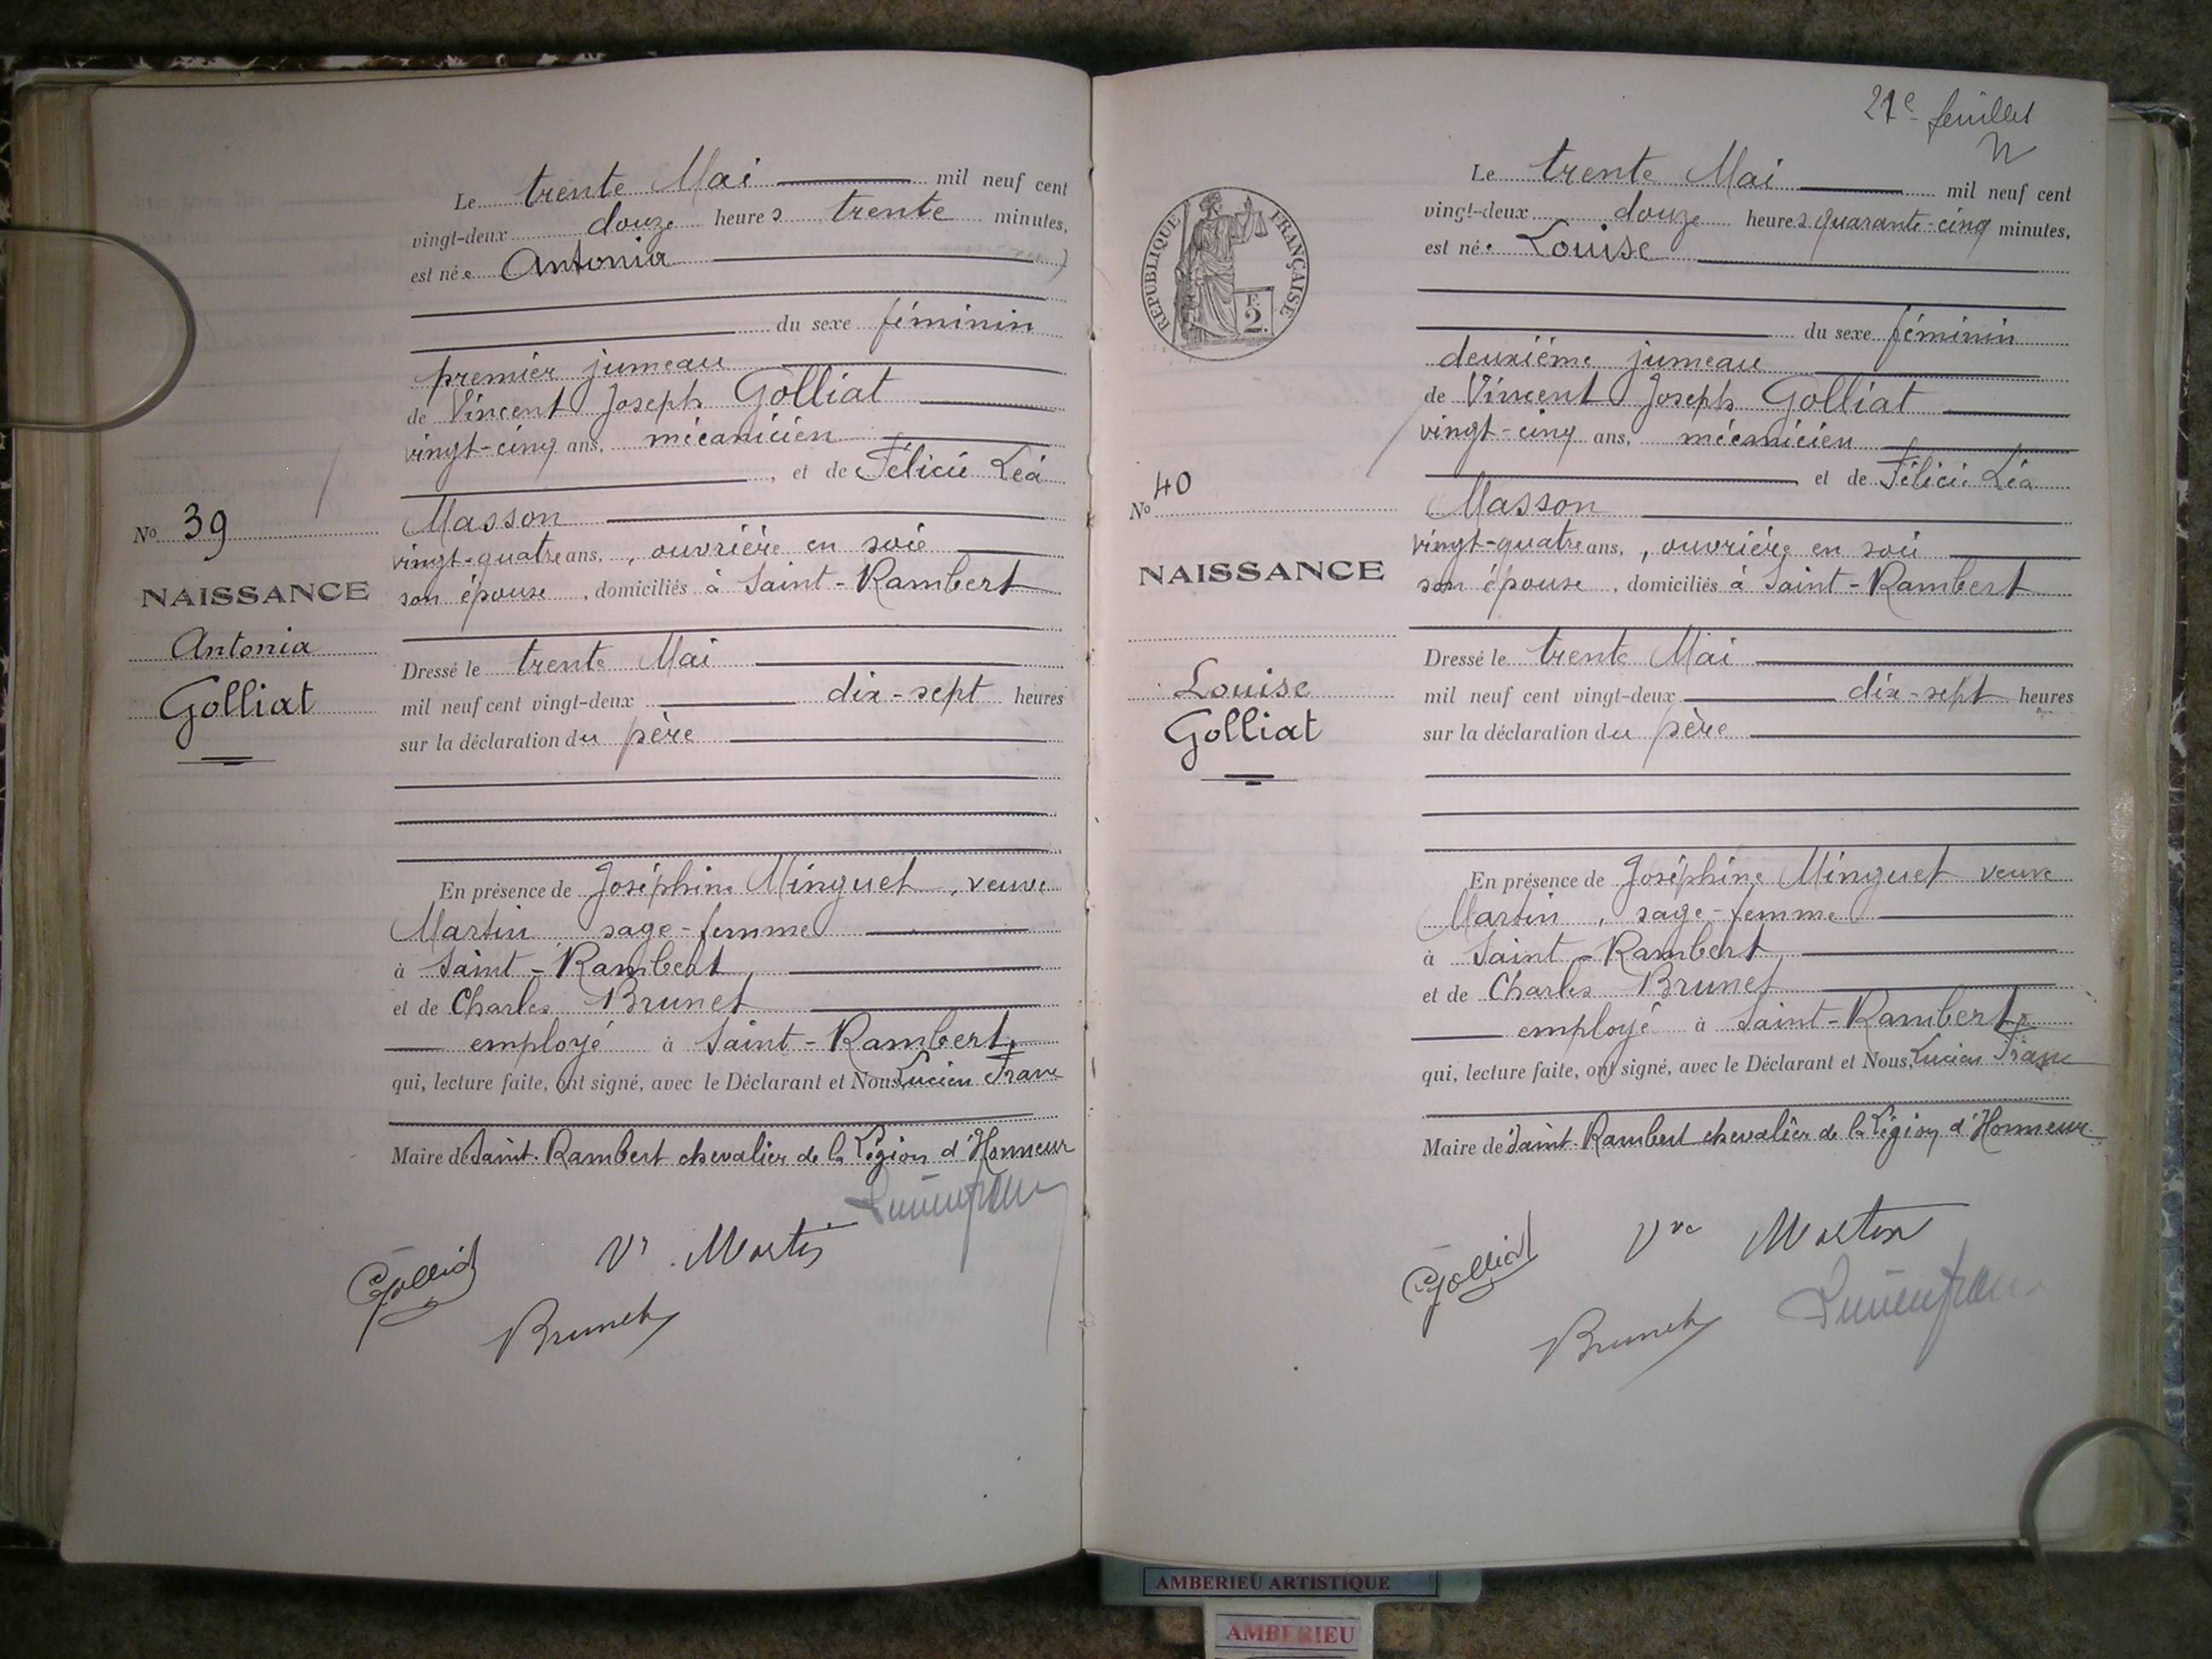 Le trente Mai mil neuf cent
vingt-deux douze heures trente minutes,
est née Antonia
du sexe féminin
premier jumeau
de Vincent Joseph Golliat
vingt-cinq ans, mécanicien
, et de Félicie Léa
Masson
vingt-quatre ans, , ouvrière en soie
son épouse , domiciliés à Saint-Rambert
Dressé le trente Mai
mil neuf cent vingt-deux dix-sept heures
sur la déclaration du père
En présence de Joséphine Minguet , veuve
Martin sage-femme
à Saint-Rambert
et de Charles Brunet
employé à Saint-Rambert
qui, lecture faite, ont signé, avec le Déclarant et Nous Lucien Franc
Maire de Saint-Rambert chevalier de la Légion d'Honneur
Golliat
Vve Martin
Brunet
No 39
NAISSANCE
Antonia
Golliat
21e feuillet
REPUBLIQUE FRANÇAISE
F.
2.
Le trente Mai mil neuf cent
vingt-deux douze heures quarante-cinq minutes,
est née Louise
du sexe féminin
deuxième jumeau
de Vincent Joseph Golliat
vingt-cinq ans, mécanicien
et de Félicie Léa
Masson
vingt-quatre ans, , ouvrière en soie
son épouse , domiciliés à Saint-Rambert
Dressé le trente Mai
mil neuf cent vingt-deux dix-sept heures
sur la déclaration du père
En présence de Joséphine Minguet veuve
Martin , sage-femme
à Saint-Rambert
et de Charles Brunet
employé à Saint-Rambert
qui, lecture faite, ont signé, avec le Déclarant et Nous, Lucien Franc
Maire de Saint-Rambert chevalier de la Légion d'Honneur
Golliat
Vve Martin
Brunet
No 40
NAISSANCE
Louise
Golliat
AMBERIEU ARTISTIQUE
AMBERIEU